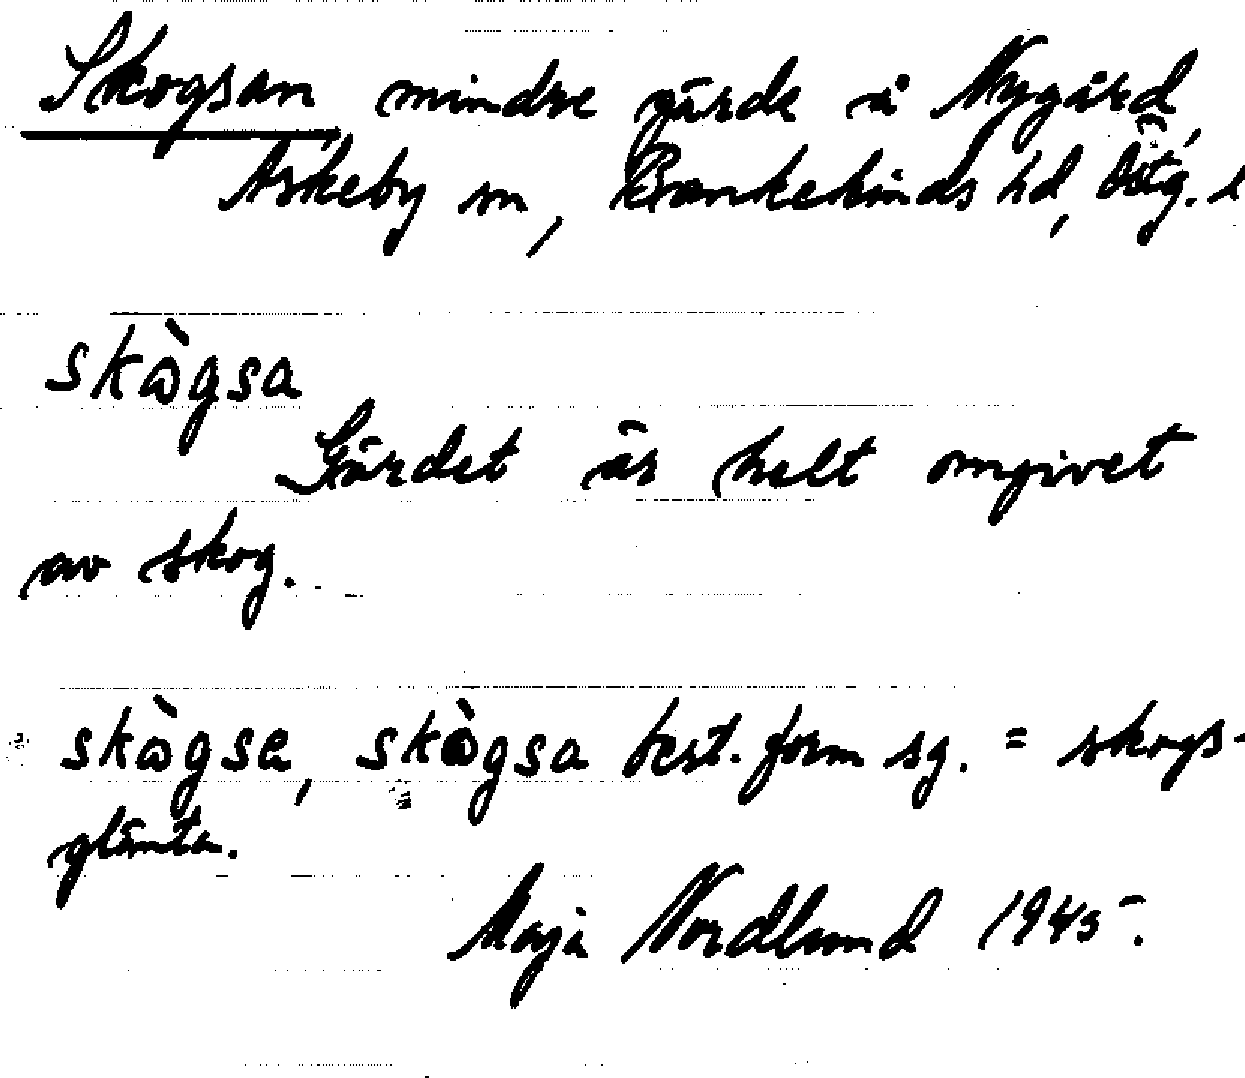 Skogsan mindre gärde å Nygård,
Askeby sn, Bankekinds hd, Östg. l
skògsa
Gärdet är helt omgivet
av skog.
skògse, skògsa best. form sg. = skogs-
glänta.
Maja Nordlund 1945.